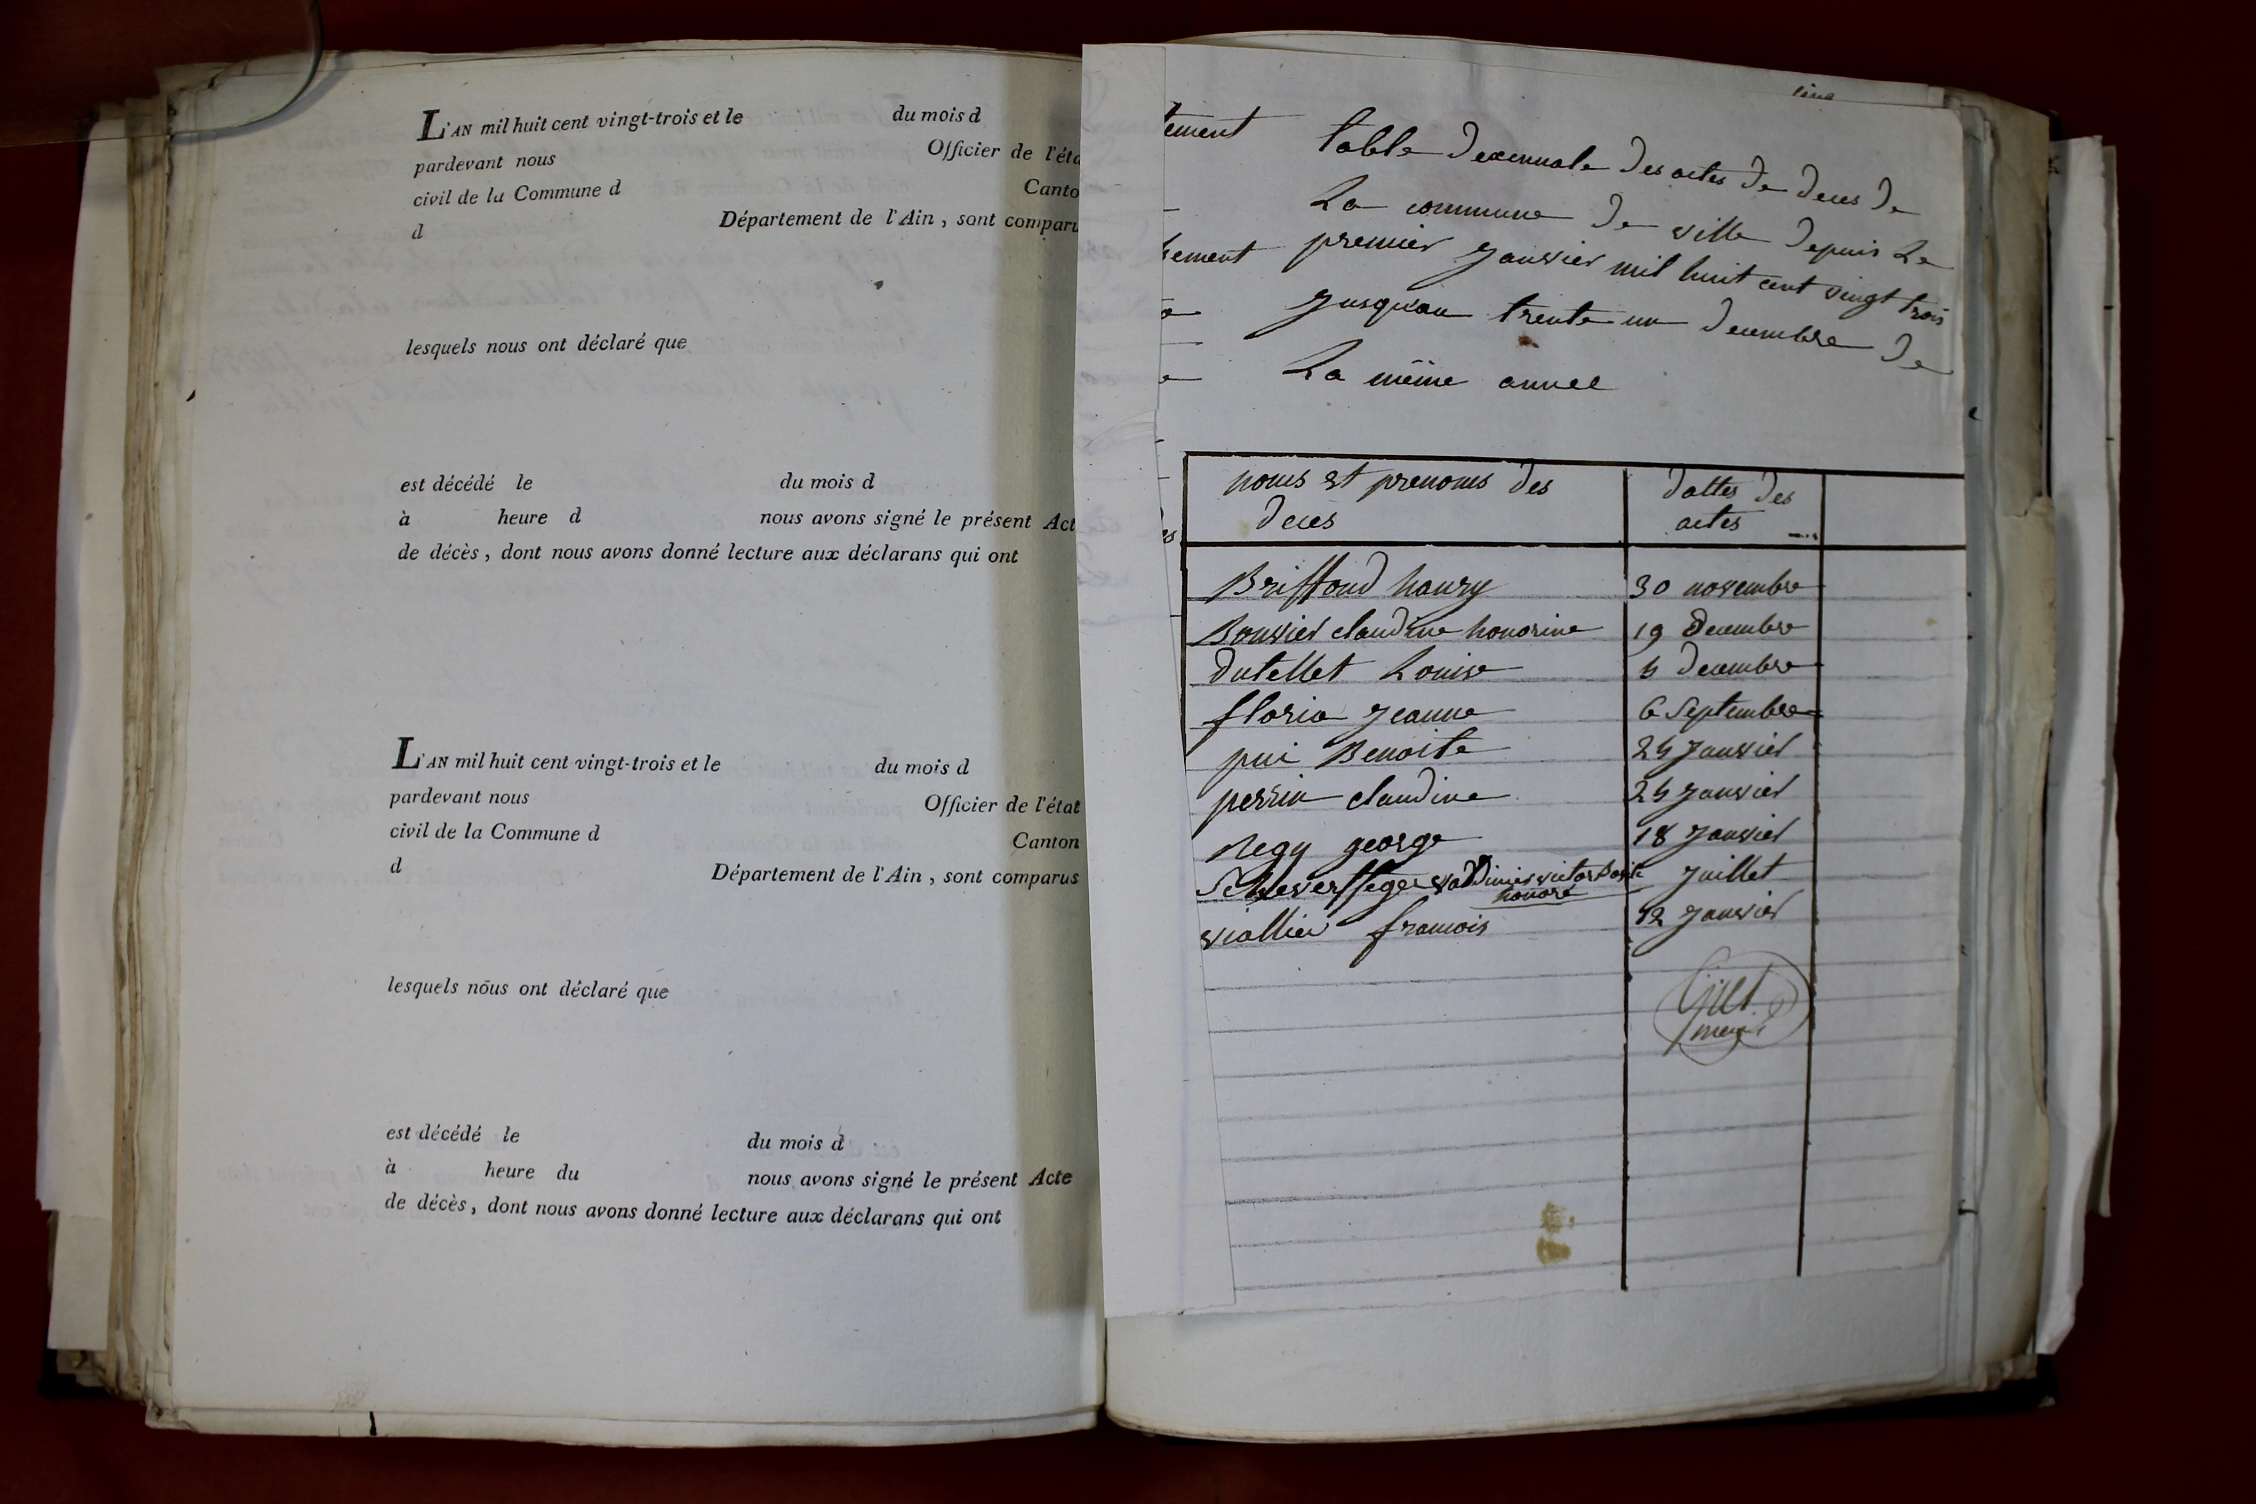 L'AN mil huit cent vingt-trois et le du mois d
pardevant nous Officier de l'éta
civil de la Commune d Canto
d Département de l'Ain, sont comparu
lesquels nous ont déclaré que
est décédé le du mois d
à heure d nous avons signé le présent Act
de décès, dont nous avons donné lecture aux déclarans qui ont
L'AN mil huit cent vingt-trois et le du mois d
pardevant nous Officier de l'état
civil de la Commune d Canton
d Département de l'Ain, sont comparus
lesquels nous ont déclaré que
est décédé le du mois d
à heure du nous avons signé le présent Acte
de décès, dont nous avons donné lecture aux déclarans qui ont
tement
table decennale des actes de deces de
La commune de ville depuis Le
premier Janvier mil huit cent vingt trois
Jusquau trente un decembre de
La même annee
noms et prenoms des deces
dattes des actes
Briffoud hanry 30 novembre
Bouvier claudine honorine 19 decembre
dutellet Louise 4 decembre
floria Jeanne 6 Septembre
pui Benoite 24 Janvier
perrin claudine 24 Janvier
Regy george 18 Janvier
victor
honoré Juillet
viallier francois 12 Janvier